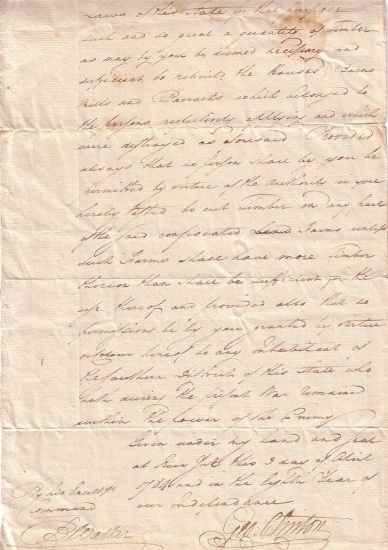 Laws of this State for that purpose
such and so great a quantity of timber
as may by you be deemed necessary and
sufficient to rebuild the Houses, Barns
Mills and Barracks which belonged to
the persons respectively applying and which
were destroyed as aforesaid Provided
always that no person shall be by you be
permitted by virtue of the Authority in you
hereby vested to cut timber on any part
of the said confiscated Farms unless
such Farms shall have more timber
thereon than shall be sufficient for the
use thereof and provided also that no
permission be by you granted by virtue
hereof to any Inhabitant of
the southern District of this State who
hath during the War remained
within the Power of the Enemy
Given under my hand and seal
at New York this 3 day of April
1784 and in the Eighth Year of
our Independence
By his Excellys
Command
Geo. Clinton